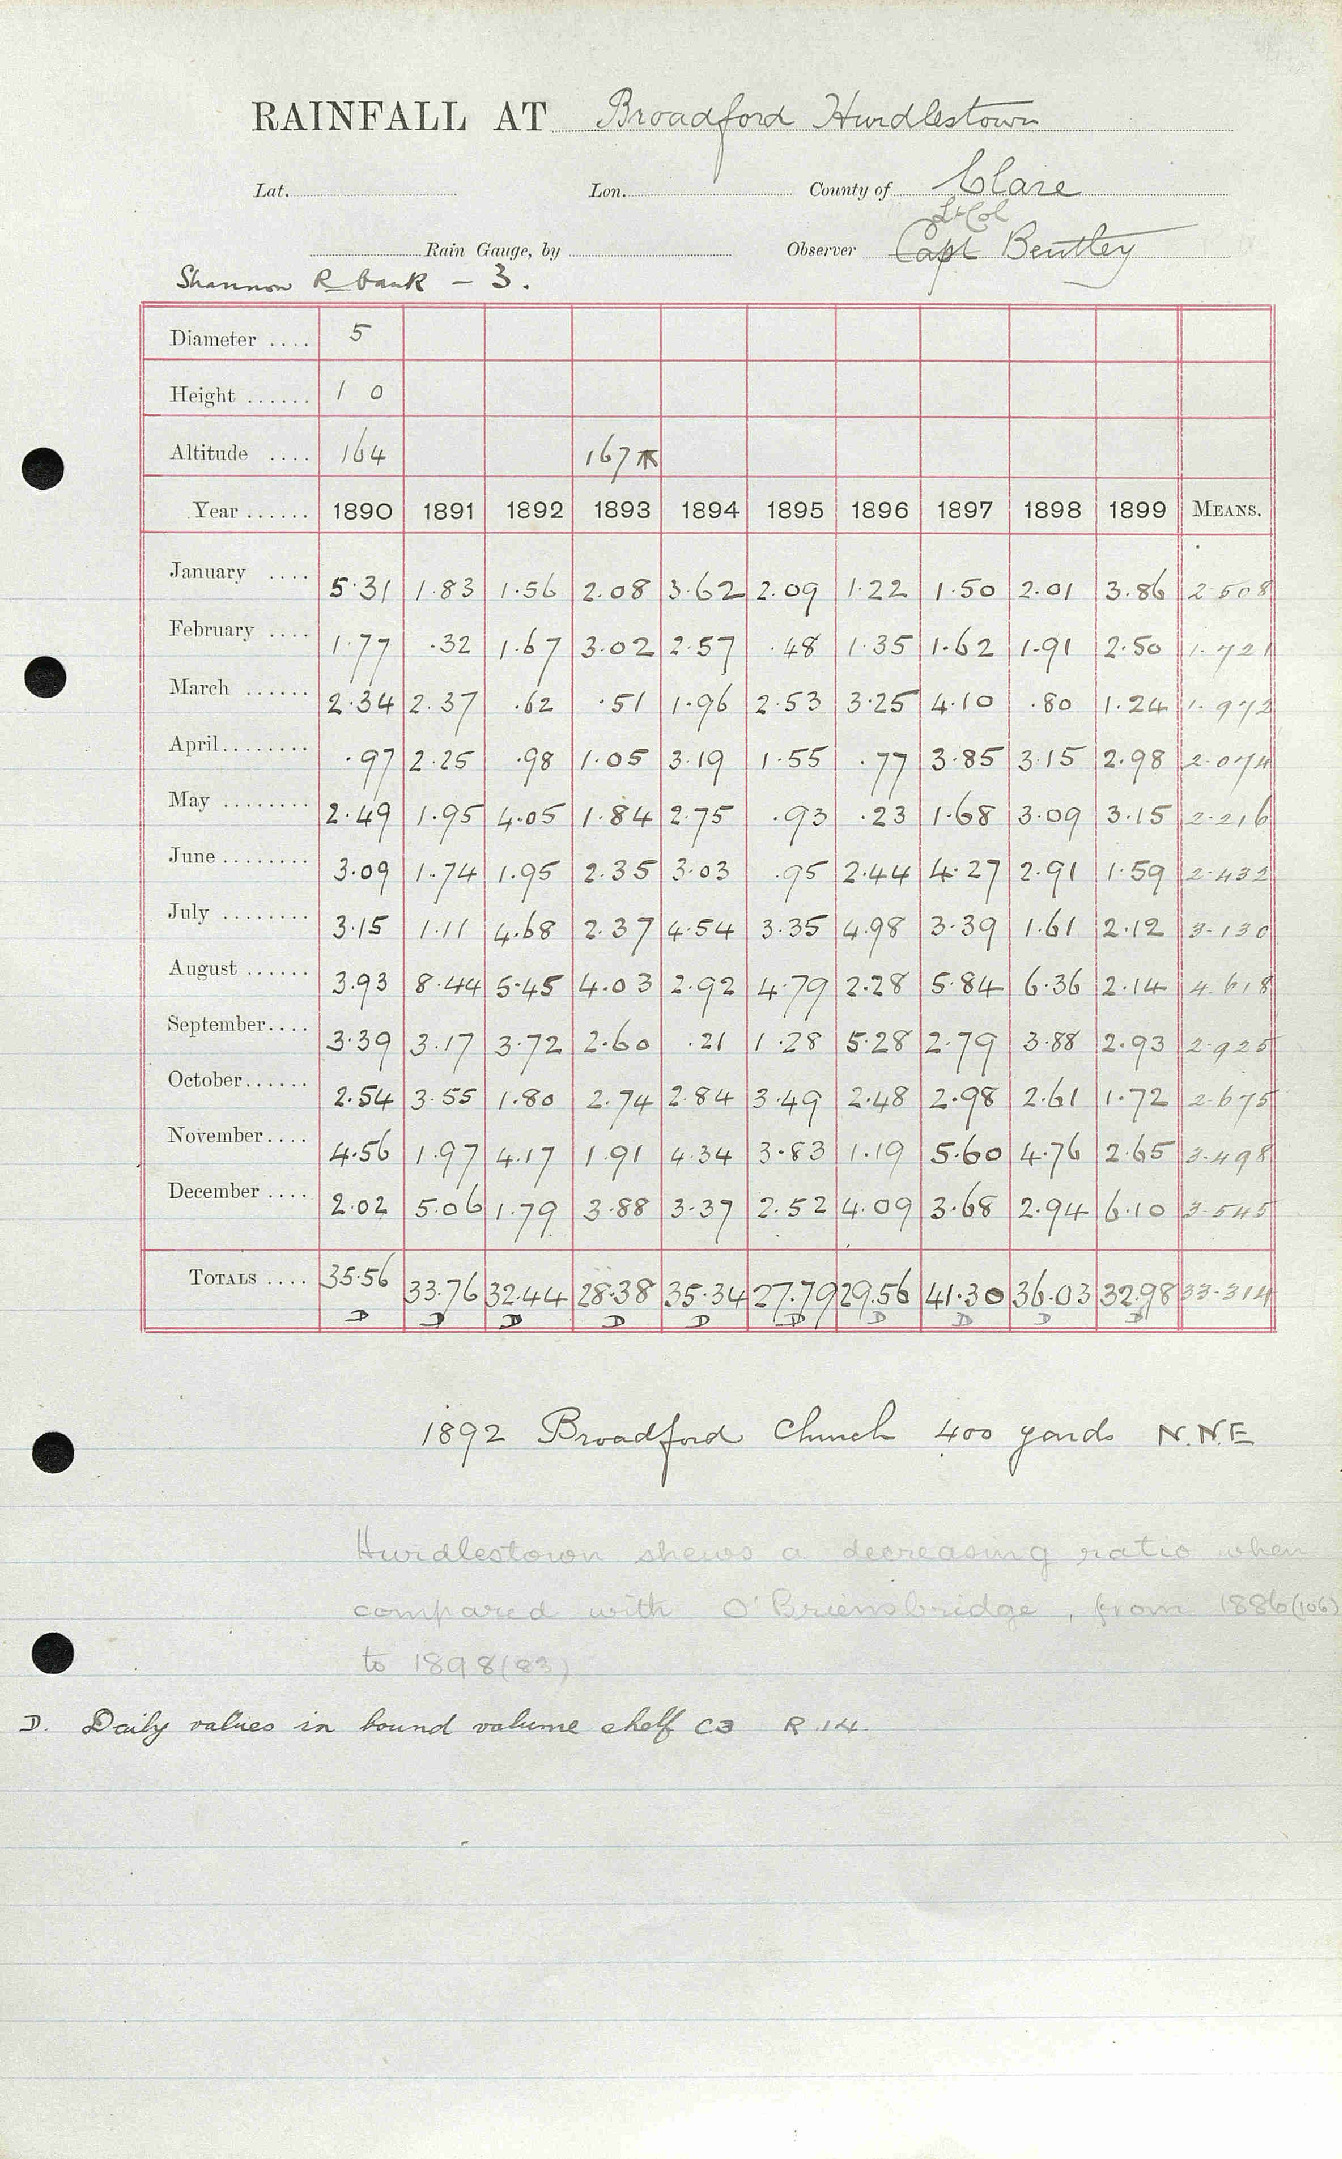 RAINFALL AT Broadford Hurdlestown
Lat. Lon. County of Clare
Lt Col
Rain Gauge, by Observer Capt Bentley
Shannon R bank - 3.
Diameter .... 5
Height ...... 1 0
Altitude .... 164 167
Year ...... 1890 1891 1892 1893 1894 1895 1896 1897 1898 1899 MEANS.
January .... 5.31 1.83 1.56 2.08 3.62 2.09 1.22 1.50 2.01 3.86 2.508
February .... 1.77 .32 1.67 3.02 2.57 .48 1.35 1.62 1.91 2.50 1.721
March ...... 2.34 2.37 .62 .51 1.96 2.53 3.25 4.10 .80 1.24 1.972
April........ .97 2.25 .98 1.05 3.19 1.55 .77 3.85 3.15 2.98 2.074
May ........ 2.49 1.95 4.05 1.84 2.75 .93 .23 1.68 3.09 3.15 2.216
June ........ 3.09 1.74 1.95 2.35 3.03 .95 2.44 4.27 2.91 1.59 2.432
July ........ 3.15 1.11 4.68 2.37 4.54 3.35 4.98 3.39 1.61 2.12 3.130
August ...... 3.93 8.44 5.45 4.03 2.92 4.79 2.28 5.84 6.36 2.14 4.618
September.... 3.39 3.17 3.72 2.60 .21 1.28 5.28 2.79 3.88 2.93 2.925
October...... 2.54 3.55 1.80 2.74 2.84 3.49 2.48 2.98 2.61 1.72 2.675
November.... 4.56 1.97 4.17 1.91 4.34 3.83 1.19 5.60 4.76 2.65 3.498
December .... 2.02 5.06 1.79 3.88 3.37 2.52 4.09 3.68 2.94 6.10 3.545
TOTALS .... 35.56 33.76 32.44 28.38 35.34 27.79 29.56 41.30 36.03 32.98 33.314
D D D D D D D D D D
1892 Broadford Church 400 yards N.N.E
Hurdlestown shews a decreasing ratio when
compared with O'Briensbridge, from 1886(106)
to 1898(83)
D. Daily values in bound volume shelf C3 R.14.